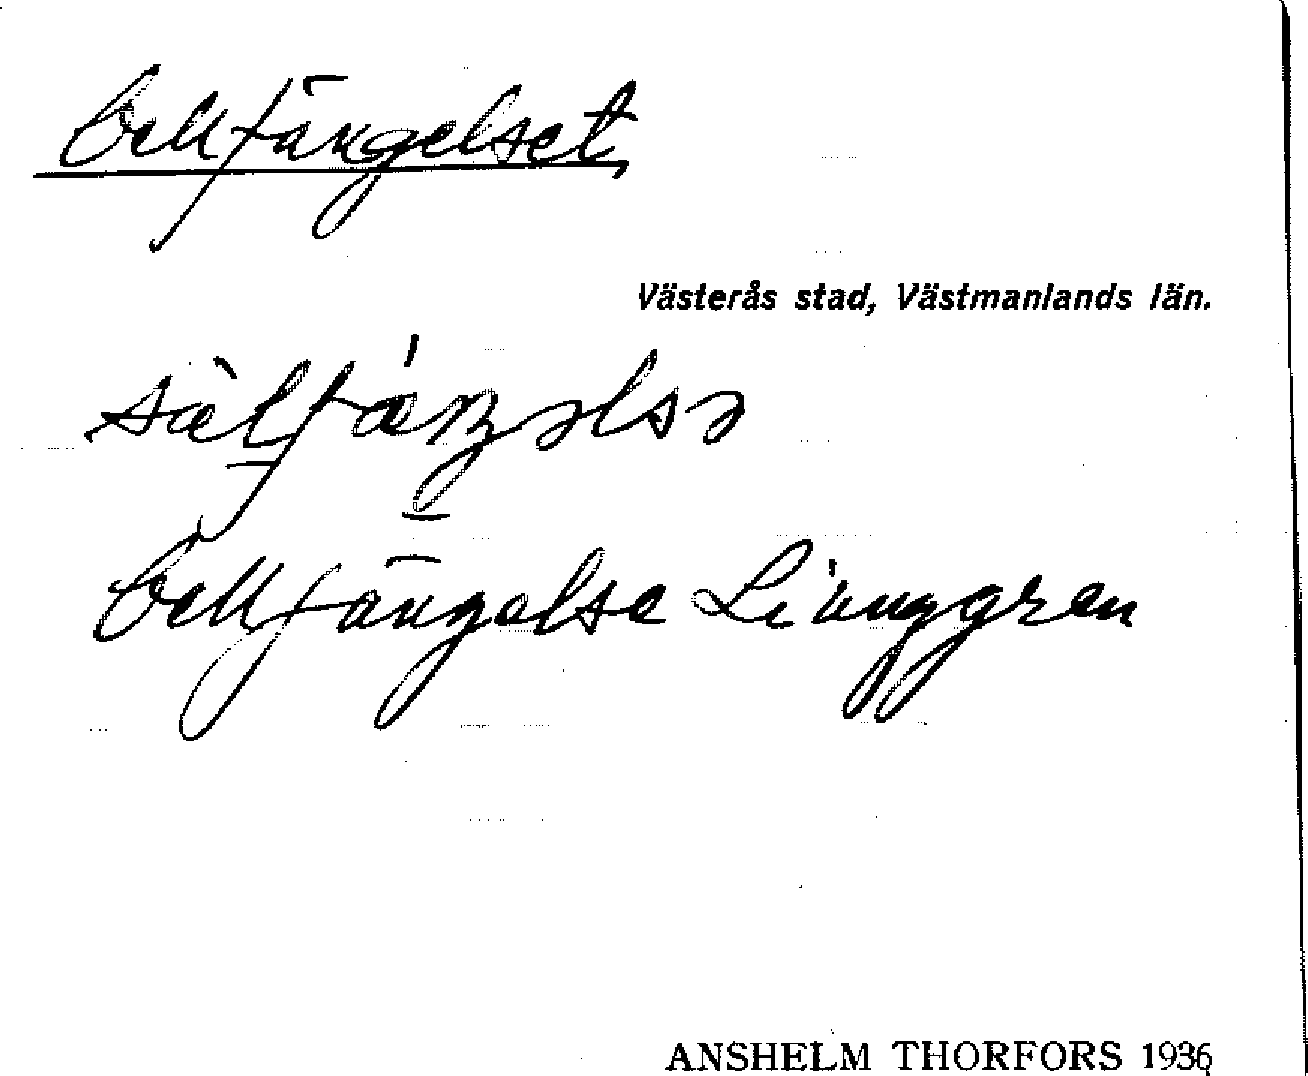 Cellfängelset,
Västerås stad, Västmanlands län.
Cellfängelse Ljunggren
ANSHELM THORFORS 1936